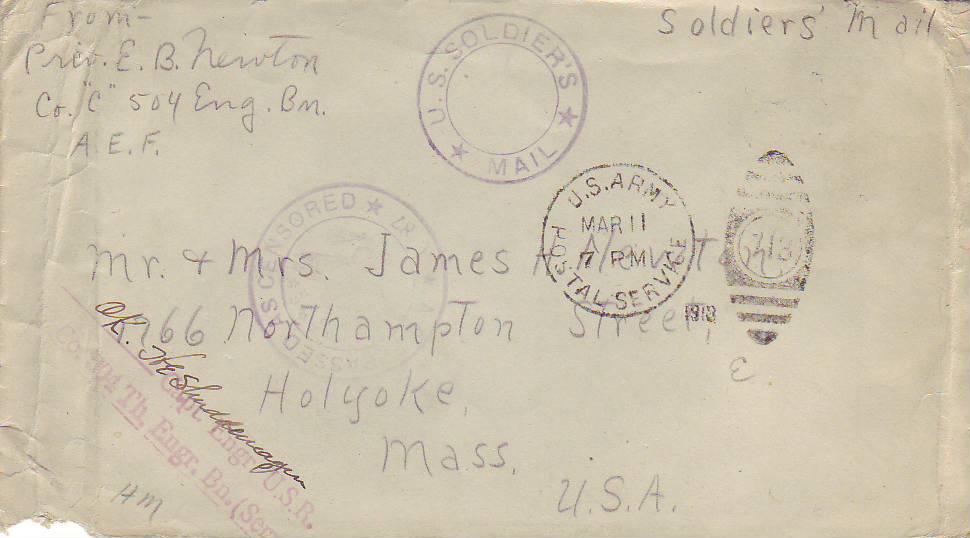 From-
Priv. E. B. Newton
Co. "C" 504 Eng. Bn.
A.E.F.
Soldiers' Mail
U.S. SOLDIER'S
★ MAIL ★
U.S. ARMY
MAR 11
7 PM
POSTAL SERVICE
713
PASSED AS CENSORED ★
Mr. & Mrs. James H. Newton,
Northampton Street,
Holyoke,
Mass.
U.S.A.
E
O.K.
Capt. Engr. U.S.R.
504 Th. Engr. Bn. (Ser
HM